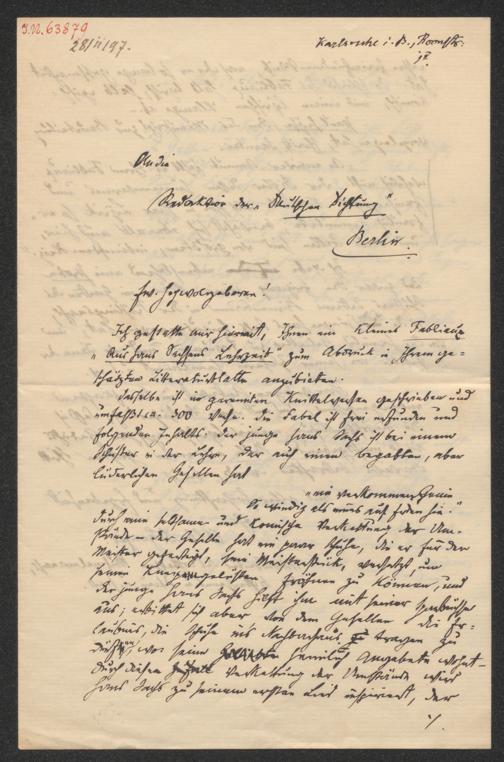 J.N. 63870
28/II 97.
Karlsruhe i. B.,
An die
Redaktion der „Deutschen Dichtung“
Berlin.
Ew. Hochwolgeboren!
Ich gestatte mir hiermit, Ihnen ein kleines Fabliaux
„Aus Hans Sachsens Lehrzeit“ zum Abdruck in Ihrem ge-
schätzten Literaturblatte anzubieten.
Dasselbe ist in gereimten Knittelversen geschrieben und
umfaßt ca. 300 Verse. Die Fabel ist frei erfunden und
folgenden Inhalts: der junge Hans Sachs ist bei einem
Schuster in der Lehre, der auch einen begabten, aber
lüderlichen Gesellen hat
„ein verkommen Genie
so windig als eines auf Erden hie.“
Durch eine seltsame und komische Verkettung der Um-
stände – der Geselle hat ein paar Schuhe, die er für den
Meister gefertigt, sein Meisterstück, versetzt, um
seinen Kneipengelüsten fröhnen zu können, und
der junge Hans Sachs hilft ihm mit seiner Sparbüchse
aus, erbittet sich aber von dem Gesellen die Er-
laubnis, die Schuhe in's Nachbarhaus tragen zu
dürfen, wo seine heimlich Angebete wohnt –
durch diese Verkettung der Umstände wird
Hans Sachs zu seinem ersten Lied inspiriert, der
./.